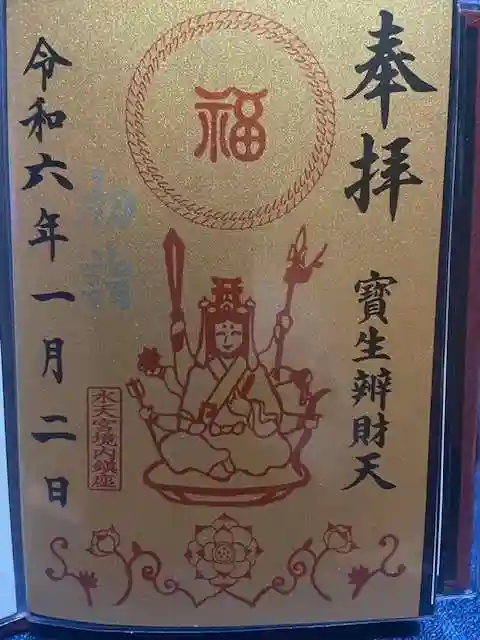 奉拝
寶生辨財天
福
初詣
水天宮境内鎮座
令和六年一月二日